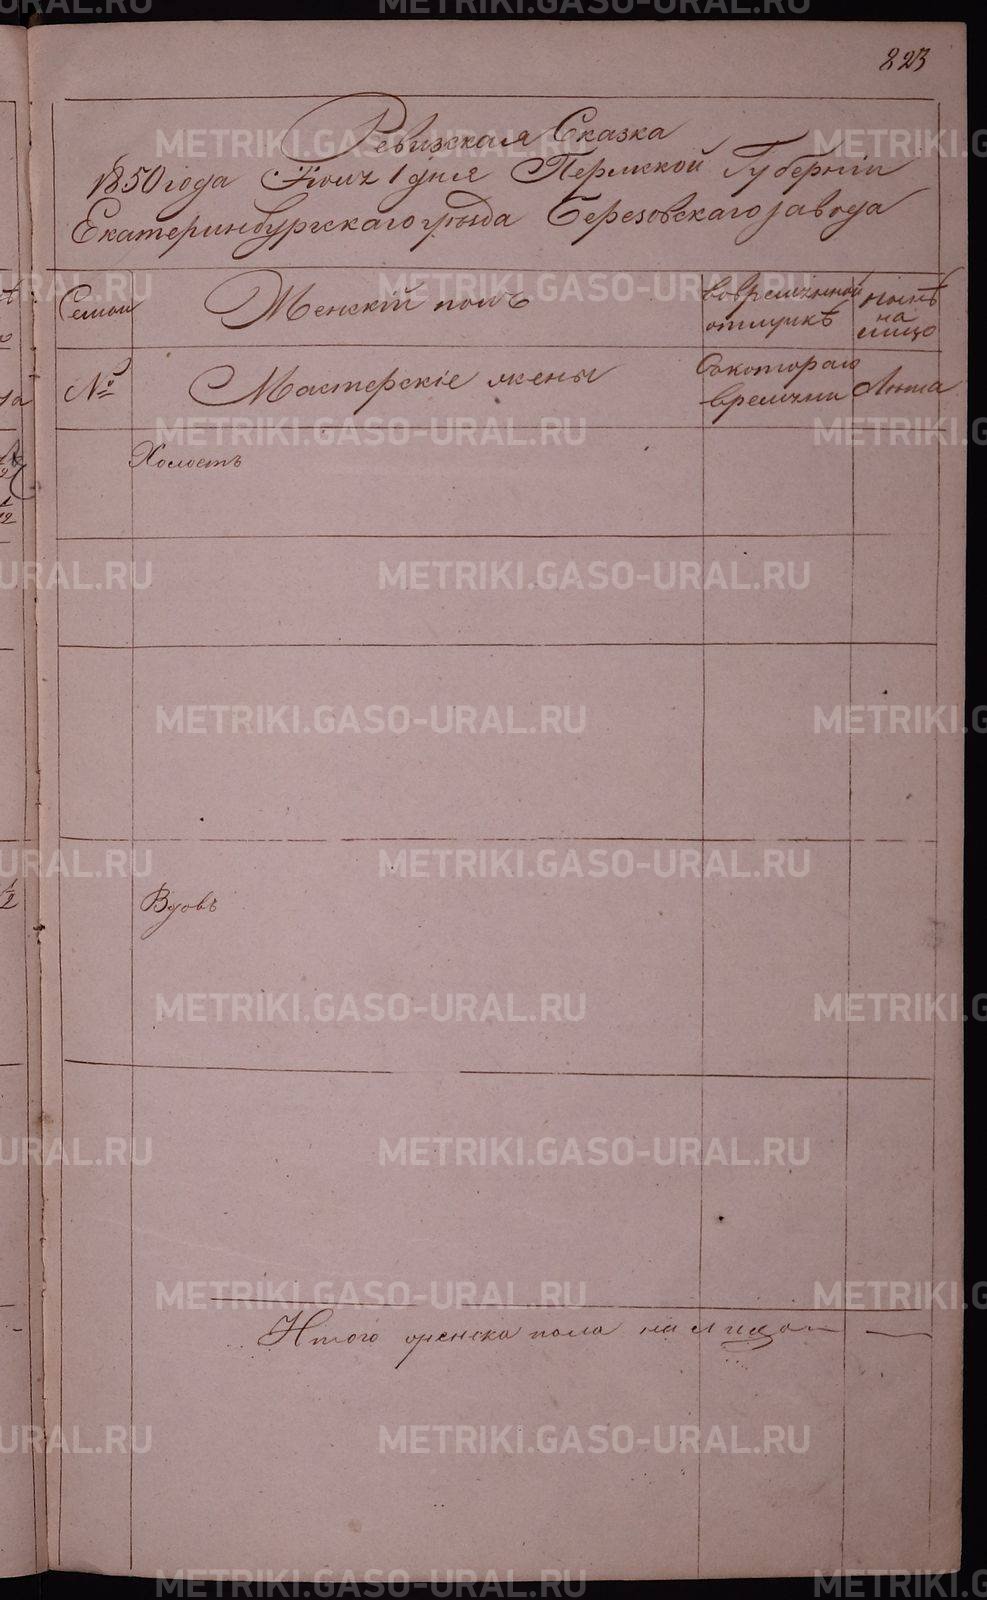 823
Ревизская Сказка
1850 года Июля 1 дня Пермской Губерніи
Екатеринбургскаго уѣзда Березовскаго завода
Семьи
Женскій полъ
Во временной
отлучкѣ
нынѣ
на
лицо
№
Мастерскіе жены
Съ котораго
времени
Лѣта
Холостъ
Вдовъ
Итого женска пола на лицо
METRIKI.GASO-URAL.RU